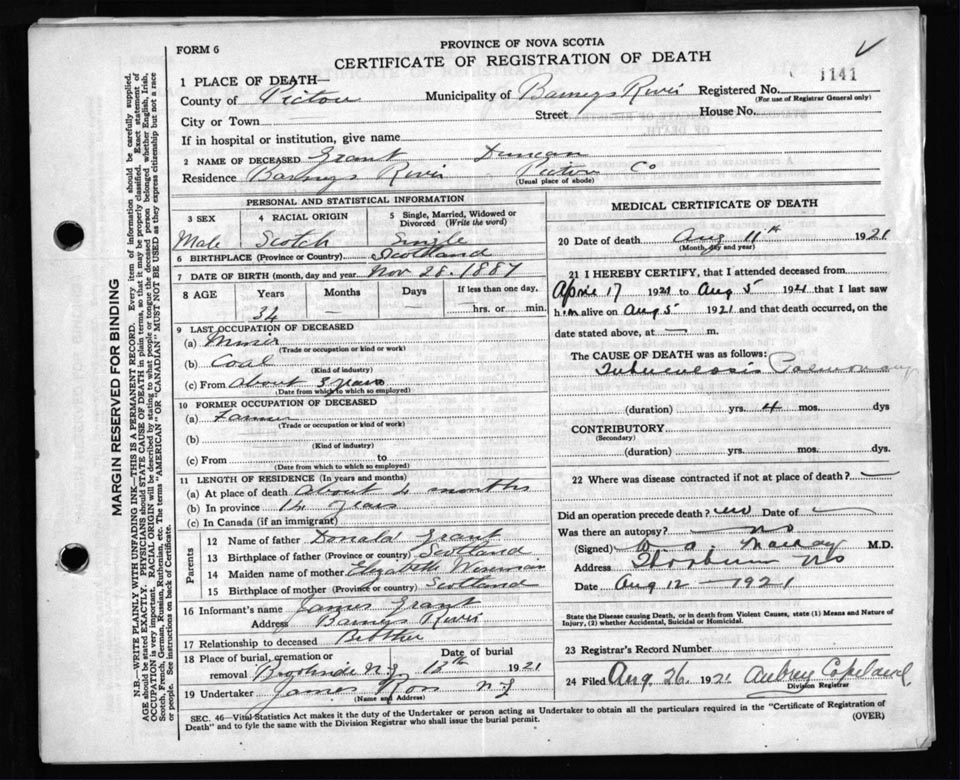 FORM 6
PROVINCE OF NOVA SCOTIA
CERTIFICATE OF REGISTRATION OF DEATH
1141
1 PLACE OF DEATH—
County of Pictou Municipality of Barneys River Registered No.
(For use of Registrar General only)
City or Town Street House No.
If in hospital or institution, give name
2 NAME OF DECEASED Grant Duncan
Residence Barneys River Pictou Co
(Usual place of abode)
PERSONAL AND STATISTICAL INFORMATION
3 SEX 4 RACIAL ORIGIN 5 Single, Married, Widowed or Divorced (Write the word)
Male Scotch Single
6 BIRTHPLACE (Province or Country) Scotland
7 DATE OF BIRTH (month, day and year) Nov 28. 1887
8 AGE Years Months Days If less than one day,
34 — hrs. or min.
9 LAST OCCUPATION OF DECEASED
(a) Miner
(Trade or occupation or kind of work)
(b) Coal
(Kind of industry)
(c) From About 3 years
(Date from which to which so employed)
10 FORMER OCCUPATION OF DECEASED
(a) Farmer
(Trade or occupation or kind of work)
(b)
(Kind of industry)
(c) From to
(Date from which to which so employed)
11 LENGTH OF RESIDENCE (In years and months)
(a) At place of death About 4 months
(b) In province 14 years
(c) In Canada (if an immigrant)
Parents
12 Name of father Donald Grant
13 Birthplace of father (Province or country) Scotland
14 Maiden name of mother Elizabeth
15 Birthplace of mother (Province or country) Scotland
16 Informant's name James Grant
Address Barneys River
17 Relationship to deceased Brother
18 Place of burial, cremation or removal Date of burial
13th 1921
19 Undertaker James Ross
(Name and Address)
MEDICAL CERTIFICATE OF DEATH
20 Date of death Aug 11th 1921
(Month, day and year)
21 I HEREBY CERTIFY, that I attended deceased from
17 1921 to Aug 5 1921 that I last saw
him alive on Aug 5 1921 and that death occurred, on the
date stated above, at — m.
The CAUSE OF DEATH was as follows:
Tuberculosis Pulmonary
(duration) yrs. 4 mos. dys
CONTRIBUTORY
(Secondary)
(duration) yrs. mos. dys.
22 Where was disease contracted if not at place of death? —
Did an operation precede death? no Date of —
Was there an autopsy? — no
(Signed) M.D.
Address NS
Date Aug 12 — 1921
State the Disease causing Death, or in death from Violent Causes, state (1) Means and Nature of Injury, (2) whether Accidental, Suicidal or Homicidal.
23 Registrar's Record Number
24 Filed Aug. 26 1921 Aubrey Copeland
Division Registrar
SEC. 46—Vital Statistics Act makes it the duty of the Undertaker or person acting as Undertaker to obtain all the particulars required in the "Certificate of Registration of
Death" and to fyle the same with the Division Registrar who shall issue the burial permit.
(OVER)
MARGIN RESERVED FOR BINDING
N.B.—WRITE PLAINLY WITH UNFADING INK—THIS IS A PERMANENT RECORD. Every item of information should be carefully supplied.
AGE should be stated EXACTLY. PHYSICIANS should STATE CAUSE OF DEATH in plain terms, so that it may be properly classified. Exact statement of
OCCUPATION is very important. RACIAL ORIGIN will be described by stating to what people or tongue the deceased person belonged, whether English, Irish,
Scotch, French, German, Russian, Ruthenian, etc. The terms "AMERICAN" OR "CANADIAN" MUST NOT BE USED as they express citizenship but not a race
or people. See instructions on back of Certificate.